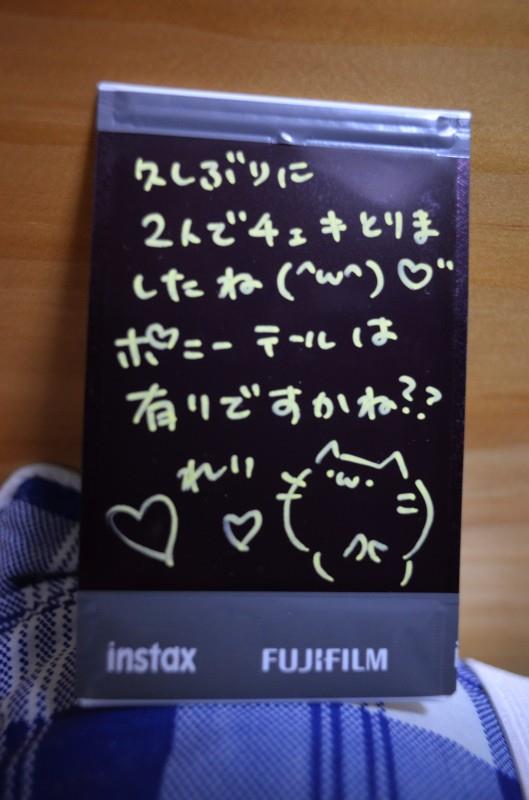 久しぶりに
2人でチェキとりま
したね(^ω^)♡゛
ポニーテールは
有りですかね??
れいい
instax FUJIFILM